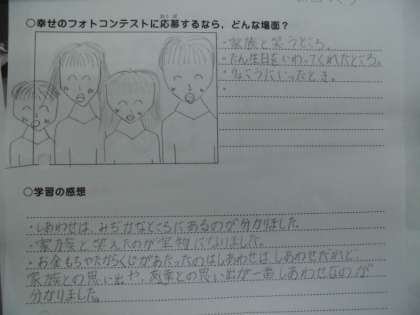 ○幸せのフォトコンテストに応募するなら、どんな場面？
・家族と笑うところ。
・たん生日をいわってくれたところ。
・りょこうにいったとき。
・
○学習の感想
・しあわせは、みぢかなところにあるのが分かりました。
・家族と笑えたのが宝物になりました。
・お金もちやたからくじがあたったのはしあわせはしあわせだけど、
家族との思い出や、友達との思い出が一番しあわせなのが
分かりました。